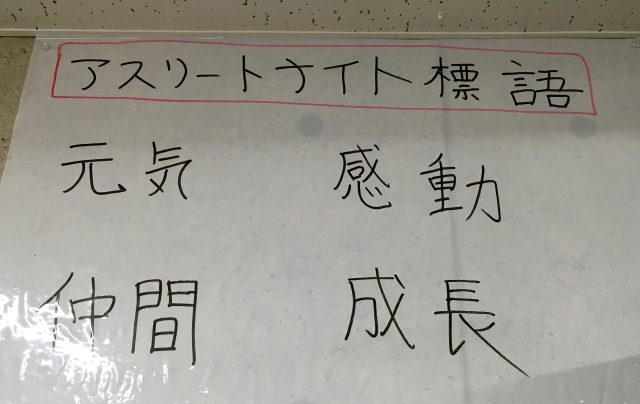 アスリートナイト標語
元気 感動
仲間 成長